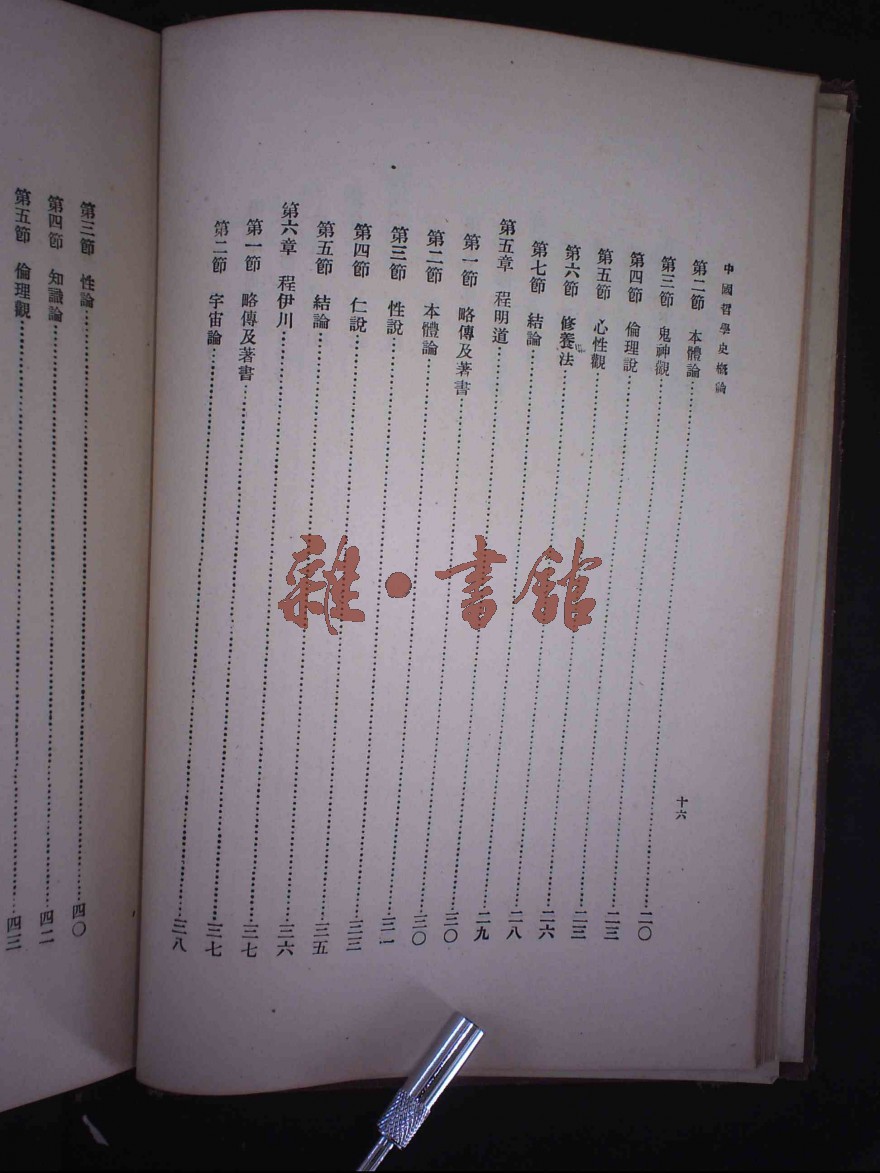 中國哲學史概論
十六
第二節 本體論……二〇
第三節 鬼神觀……二三
第四節 倫理說……二三
第五節 心性觀……二六
第六節 修養法……二八
第七節 結論……二九
第五章 程明道……三〇
第一節 略傳及著書……三〇
第二節 本體論……三一
第三節 性說……三三
第四節 仁說……三五
第五節 結論……三六
第六章 程伊川……三七
第一節 略傳及著書……三七
第二節 宇宙論……三八
第三節 性論……四〇
第四節 知識論……四二
第五節 倫理觀……四三
雜·書館